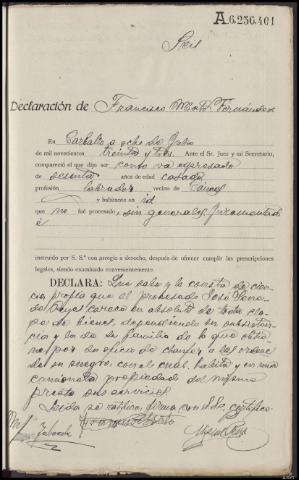 A.6.256.401
Seis
Declaración de Francisco Fernández
En Carballo a ocho de Julio
de mil novecientos treinta y tres. Ante el Sr. Juez y mi Secretario,
compareció el que dijo ser como va expresado
de sesenta años de edad casado
profesión labrador vecino de
y habitante en id
que no fué procesado, sin generales, juramentado
instruido por S. S.ª con arreglo a derecho, después de ofrecer cumplir las prescripciones
legales, siendo examinado convenientemente.
DECLARA: Que sabe y le consta de cien-
cia propia que el procesado José
carece en absoluto de toda cla-
se de bienes, dependiendo su subsisten-
cia y la de su familia de lo que obtie-
ne por su oficio de chofer, a las ordenes
de su suegro, con el cual habita y en una
camioneta propiedad del mismo
presta sus servicios.
Leida se ratifica, firma con S.S. certifico.